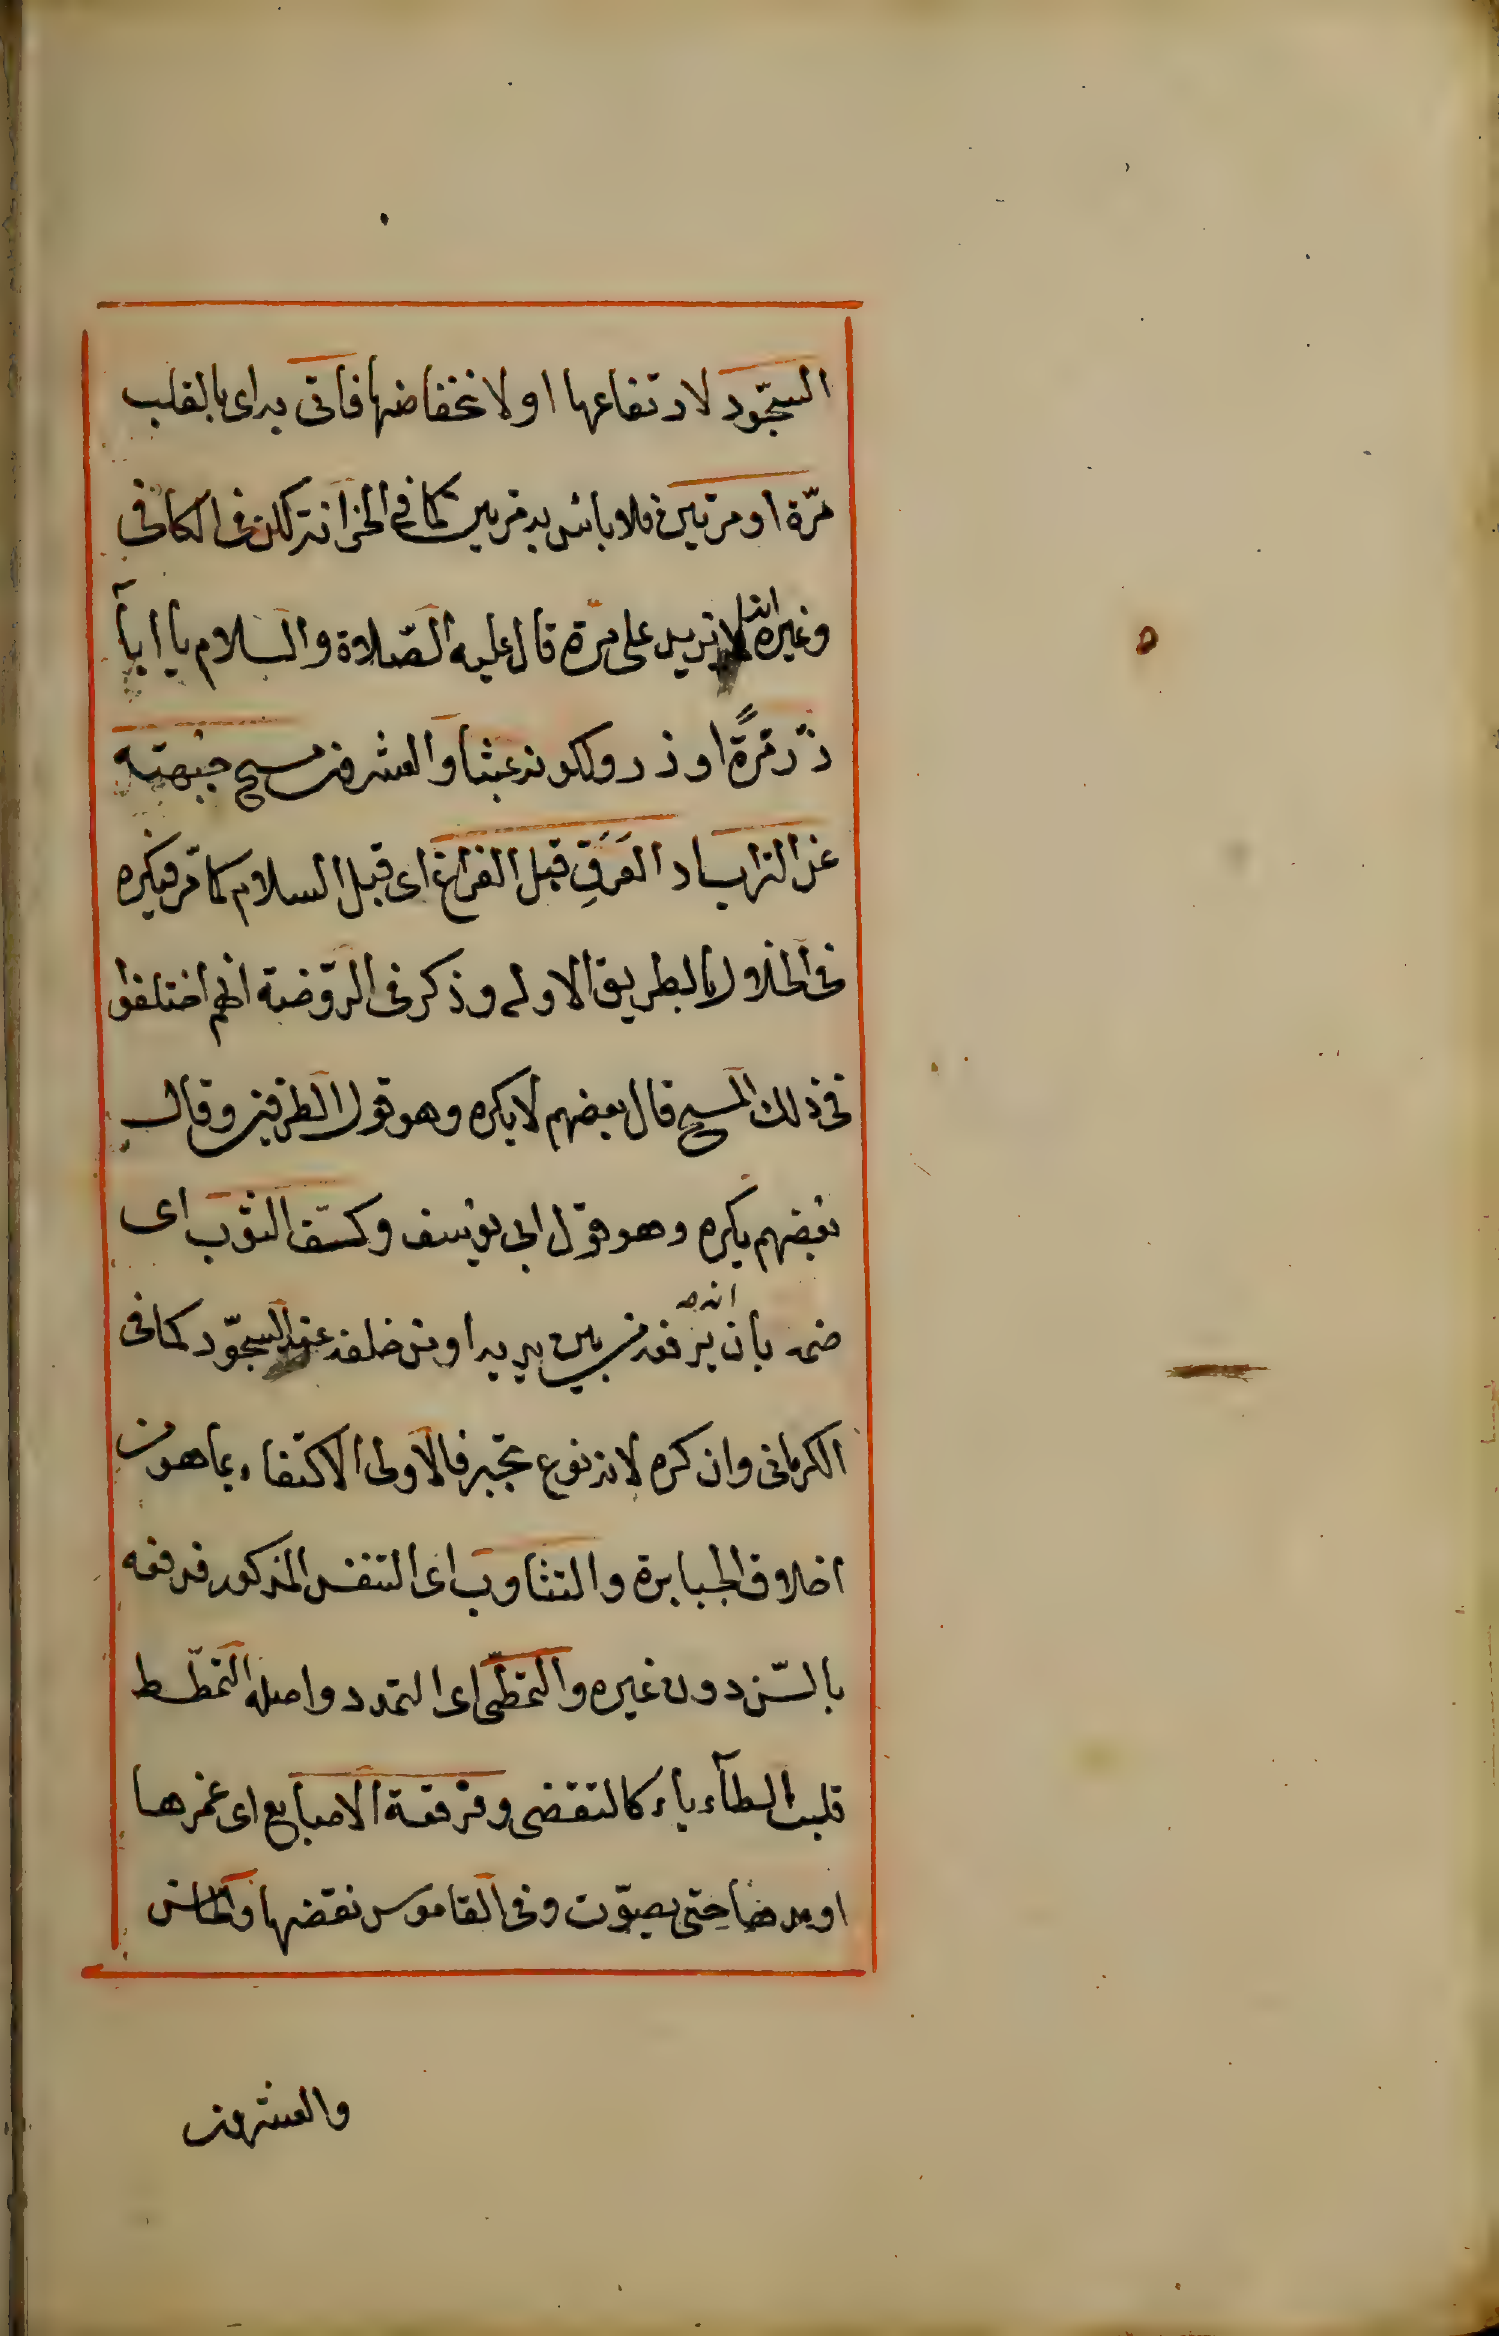 السجّود لارتفاعها او لانخفاضها فاتى به اى بالقلب
مرّة او مرتين فلا باس به مرتين كما في الخزانة لكن فى الكافى
وغيره انه لا يزيد على مرّة قال عليه الصّلاة والسلام يا ابآ
ذرّ مرّةً او ذر ولكونه عبثا والعشر من مسح جبهته
عن التراب او العَرَقِ قبل الفراغ اى قبل السلام كما مرّ فيكره
فى الخلال بالطريق الاولى وذكر فى الرّوضة انهم اختلفوا
فى ذلك المسح قال بعضهم لا يكره وهو قول الطرفين وقال
بعضهم يكره وهو قول ابى يوسف وكسّف الثوب اى
ضمه بان يرفعه من بين يديه او من خلفه عند السجّود كما فى
انه
الكرمانى وان كره لانه نوع تجبر فالاولى الاكتفاء بما هو من
اخلاق الجبابرة والتثاوب اى التنفس المذكور فدفعه
بالسّن دون غيره والتمطّى اى التمدد واصله التمطّط
قلبت الطآء ياء كالتقضى وفرقعة الاصابع اى غمزها
او مدها حتى يصوّت وفى القاموس نقضها والخامس
والعشرون